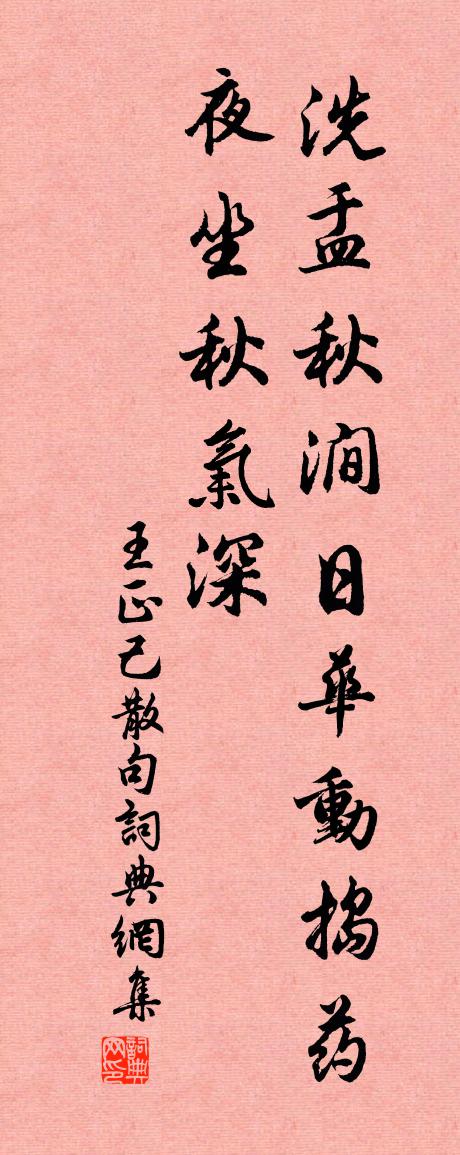 洗盂秋澗日華動搗药
夜坐秋氣深
王正己散句詞典網集
詞典网印